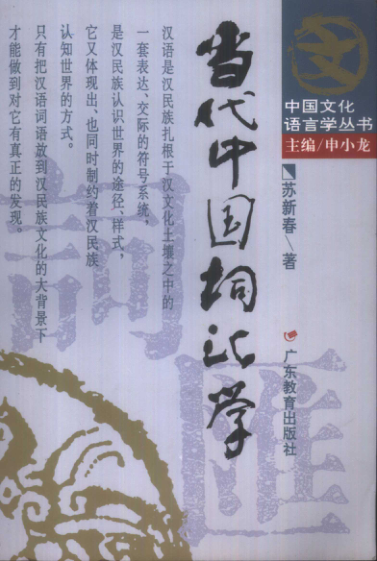 文
中国文化
语言学丛书
主编/申小龙
苏新春/著
当代中国词汇学
汉语是汉民族扎根于汉文化土壤之中的
一套表达、交际的符号系统，
是汉民族认识世界的途径、样式，
它又体现出、也同时制约着汉民族
认知世界的方式。
只有把汉语词语放到汉民族文化的大背景下
才能做到对它有真正的发现。
词
汇
广东教育出版社